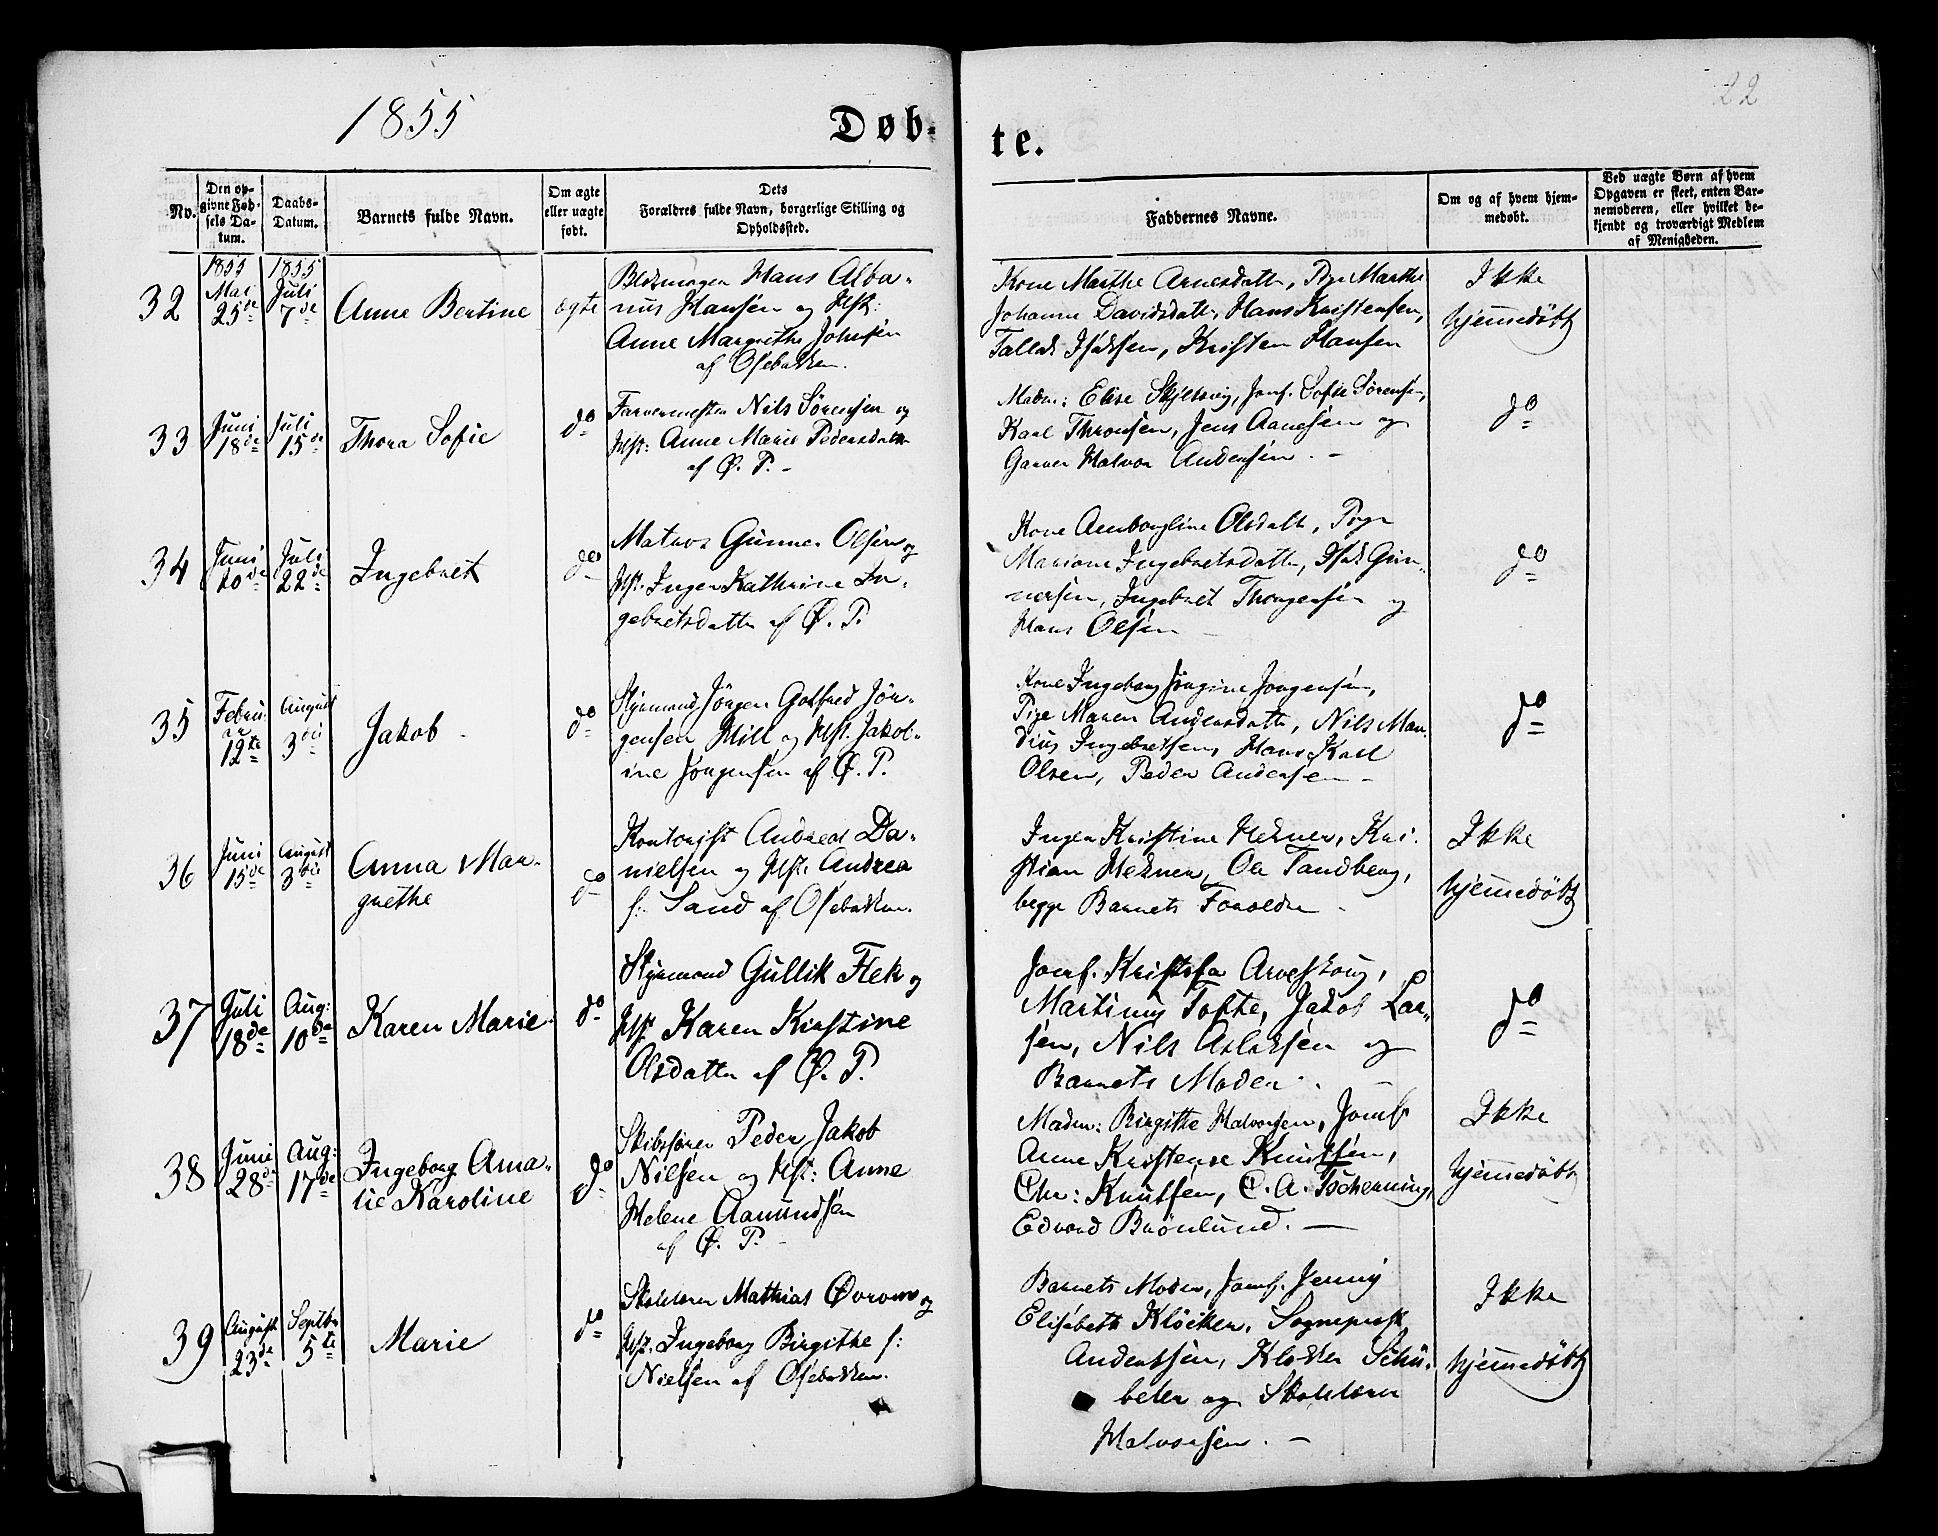 1855
Døb-
te.
22
Nr.
Den op-
givne Fød-
sels Da-
tum.
Daabs-
Datum.
Barnets fulde Navn.
Om ægte
eller uægte
født.
Dets
Forældres fulde Navn, borgerlige Stilling og
Opholdssted.
Faddernes Navne.
Om og af hvem hjem-
medøbt.
Ved uægte Børn af hvem
Opgaven er skeet, enten Bar-
nemoderen, eller hvilket be-
kjendt og troværdigt Medlem
af Menigheden.
32
1855
Mai
25de
1855
Juli
7de
Anne Bertine
ægte
Blokmager Hans Alba-
nus Hansen og Hst:
Anne Margrethe Johnsen
af Osebakken.
Kone Marthe Arnesdatt, Pige Marthe
Johanne Davidsdatt, Hans Kristensen,
Tallak Isaksen, Kristen Hansen
Ikke
hjemmedøbt
33
Juni
18de
Juli
15de
Thora Sofie
do
Farvermester Nils Sørensen og
Hst: Anne Marie Pedersdatter
af Ø. P. -
Madm: Elise Skjelsvig, Jomf. Sofie Sørensen,
Karl Thronsen, Jens Aanesen og
Garver Halvor Andersen. -
do
34
Juni
20de
Juli
22de
Ingebret
do
Matros Gunner Olsen og
Hst. Inger Kathrine In-
gebretsdatter af Ø. P.
Kone Amborgline Olsdatt, Pige
Mariane Ingebretsdatter, Isak Gun-
nersen, Ingebret Thorgersen og
Hans Olsen -
do
35
Febru-
ar
12te
August
3die
Jakob
do
Styrmand Jörgen Gotfred Jör-
gensen Hill og Hst. Jakob-
ine Jörgensen af Ø. P.
Kone Ingeborg Jörgine Jörgensen,
Pige Maren Andersdatter, Nils Mar-
dius Ingebretsen, Hans Karl
Olsen, Peder Andersen -
do
36
Juni
15de
August
3die
Anna Mar-
grethe
do
Kontorist Andreas Da-
nielsen og Hst: Andrea
f: Sand af Osebakken.
Inger Kristine Hesner, Kri-
stian Hesner, Ole Tandberg,
begge Barnets Forældre -
Ikke
hjemmedøbt
37
Juli
18de
Aug:
10de
Karen Marie
do
Styrmand Gullik Flek og
Hst. Karen Kirstine
Olsdatter af Ø. P.
Jomf. Kristofa Arveskoug,
Martinus Tofte, Jakob Lar-
sen, Nils Aslaksen og
Barnets Moder -
do
38
Juni
28de
Aug:
17de
Ingeborg Ama-
lie Karoline
do
Skibsfører Peder Jakob
Nielsen og Hst: Anne
Helene Aamundsen
af Ø. P. -
Madm: Birgitte Halvorsen, Jomf
Anne Kristense Knutsen,
Chr: Knutsen, C. A. Tscherning,
Edvard Brönlund. -
Ikke
hjemmedøbt
39
August
23de
Septbr
5te
Marie
do
Skolelærer Mathias Övrom og
Hst. Ingeborg Birgithe f:
Nielsen af Osebakken.
Barnets Moder, Jomf. Jenny
Elisabeth Klöcker, Sogneprest
Anderssen, Klokker Schü-
beler og Skolelærer
Halvorsen. -
Ikke
hjemmedøbt